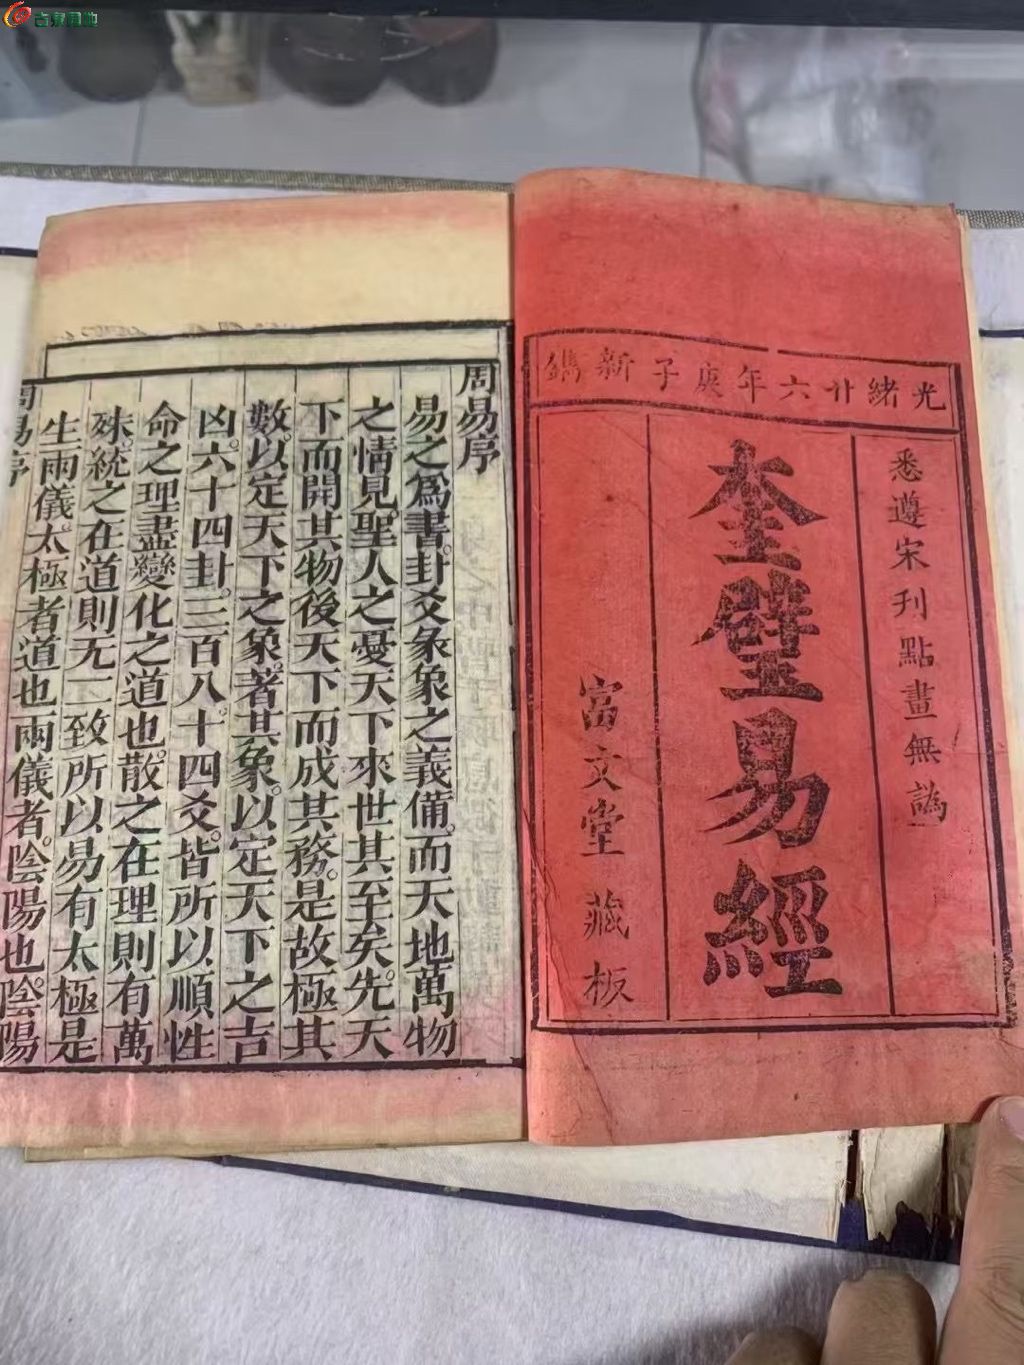 吉泉園地
光緒廿六年庚子新鐫
悉遵宋刊點畫無譌
奎璧易經
富文堂藏板
周易序
易之爲書。卦爻彖象之義備。而天地萬物
之情見。聖人之憂天下來世其至矣。先天
下而開其物後天下而成其務。是故極其
數。以定天下之象。著其象。以定天下之吉
凶。六十四卦。三百八十四爻。皆所以順性
命之理盡變化之道也。散之在理則有萬
殊。統之在道則无二致所以易有太極是
生兩儀。太極者道也兩儀者。陰陽也。陰陽
周易序